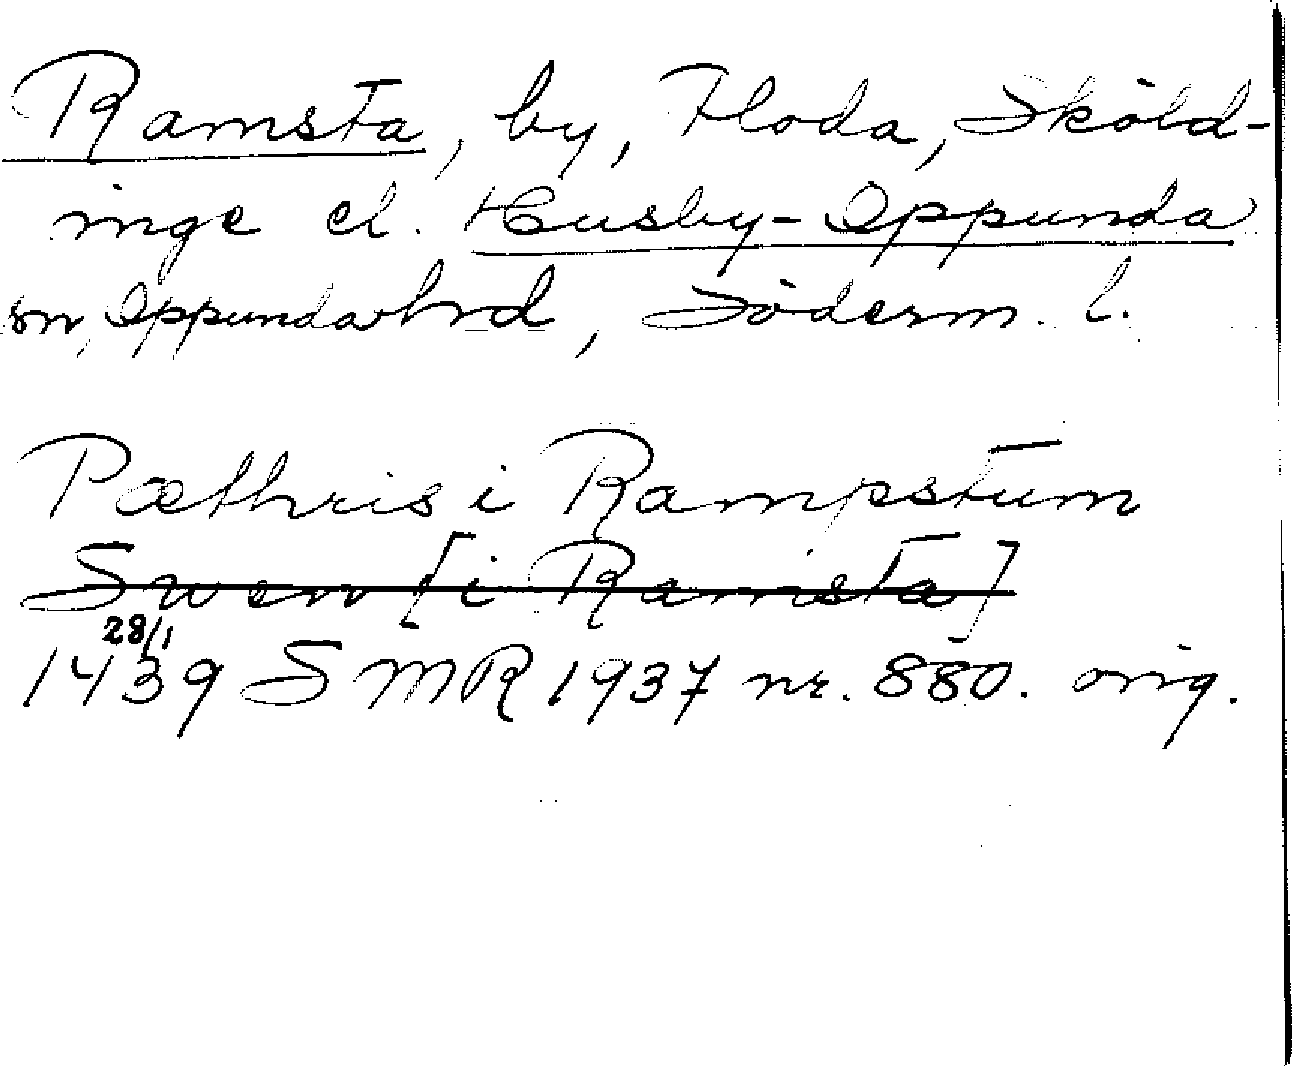 Ramsta, by, Floda, Sköld-
inge el. Husby-Oppunda
sn, Oppunda hrd, Söderm. l.
Pæthris i Rampstum
Swen [i Ramsta]
28/1
1439 SMR 1937 nr. 880. orig.